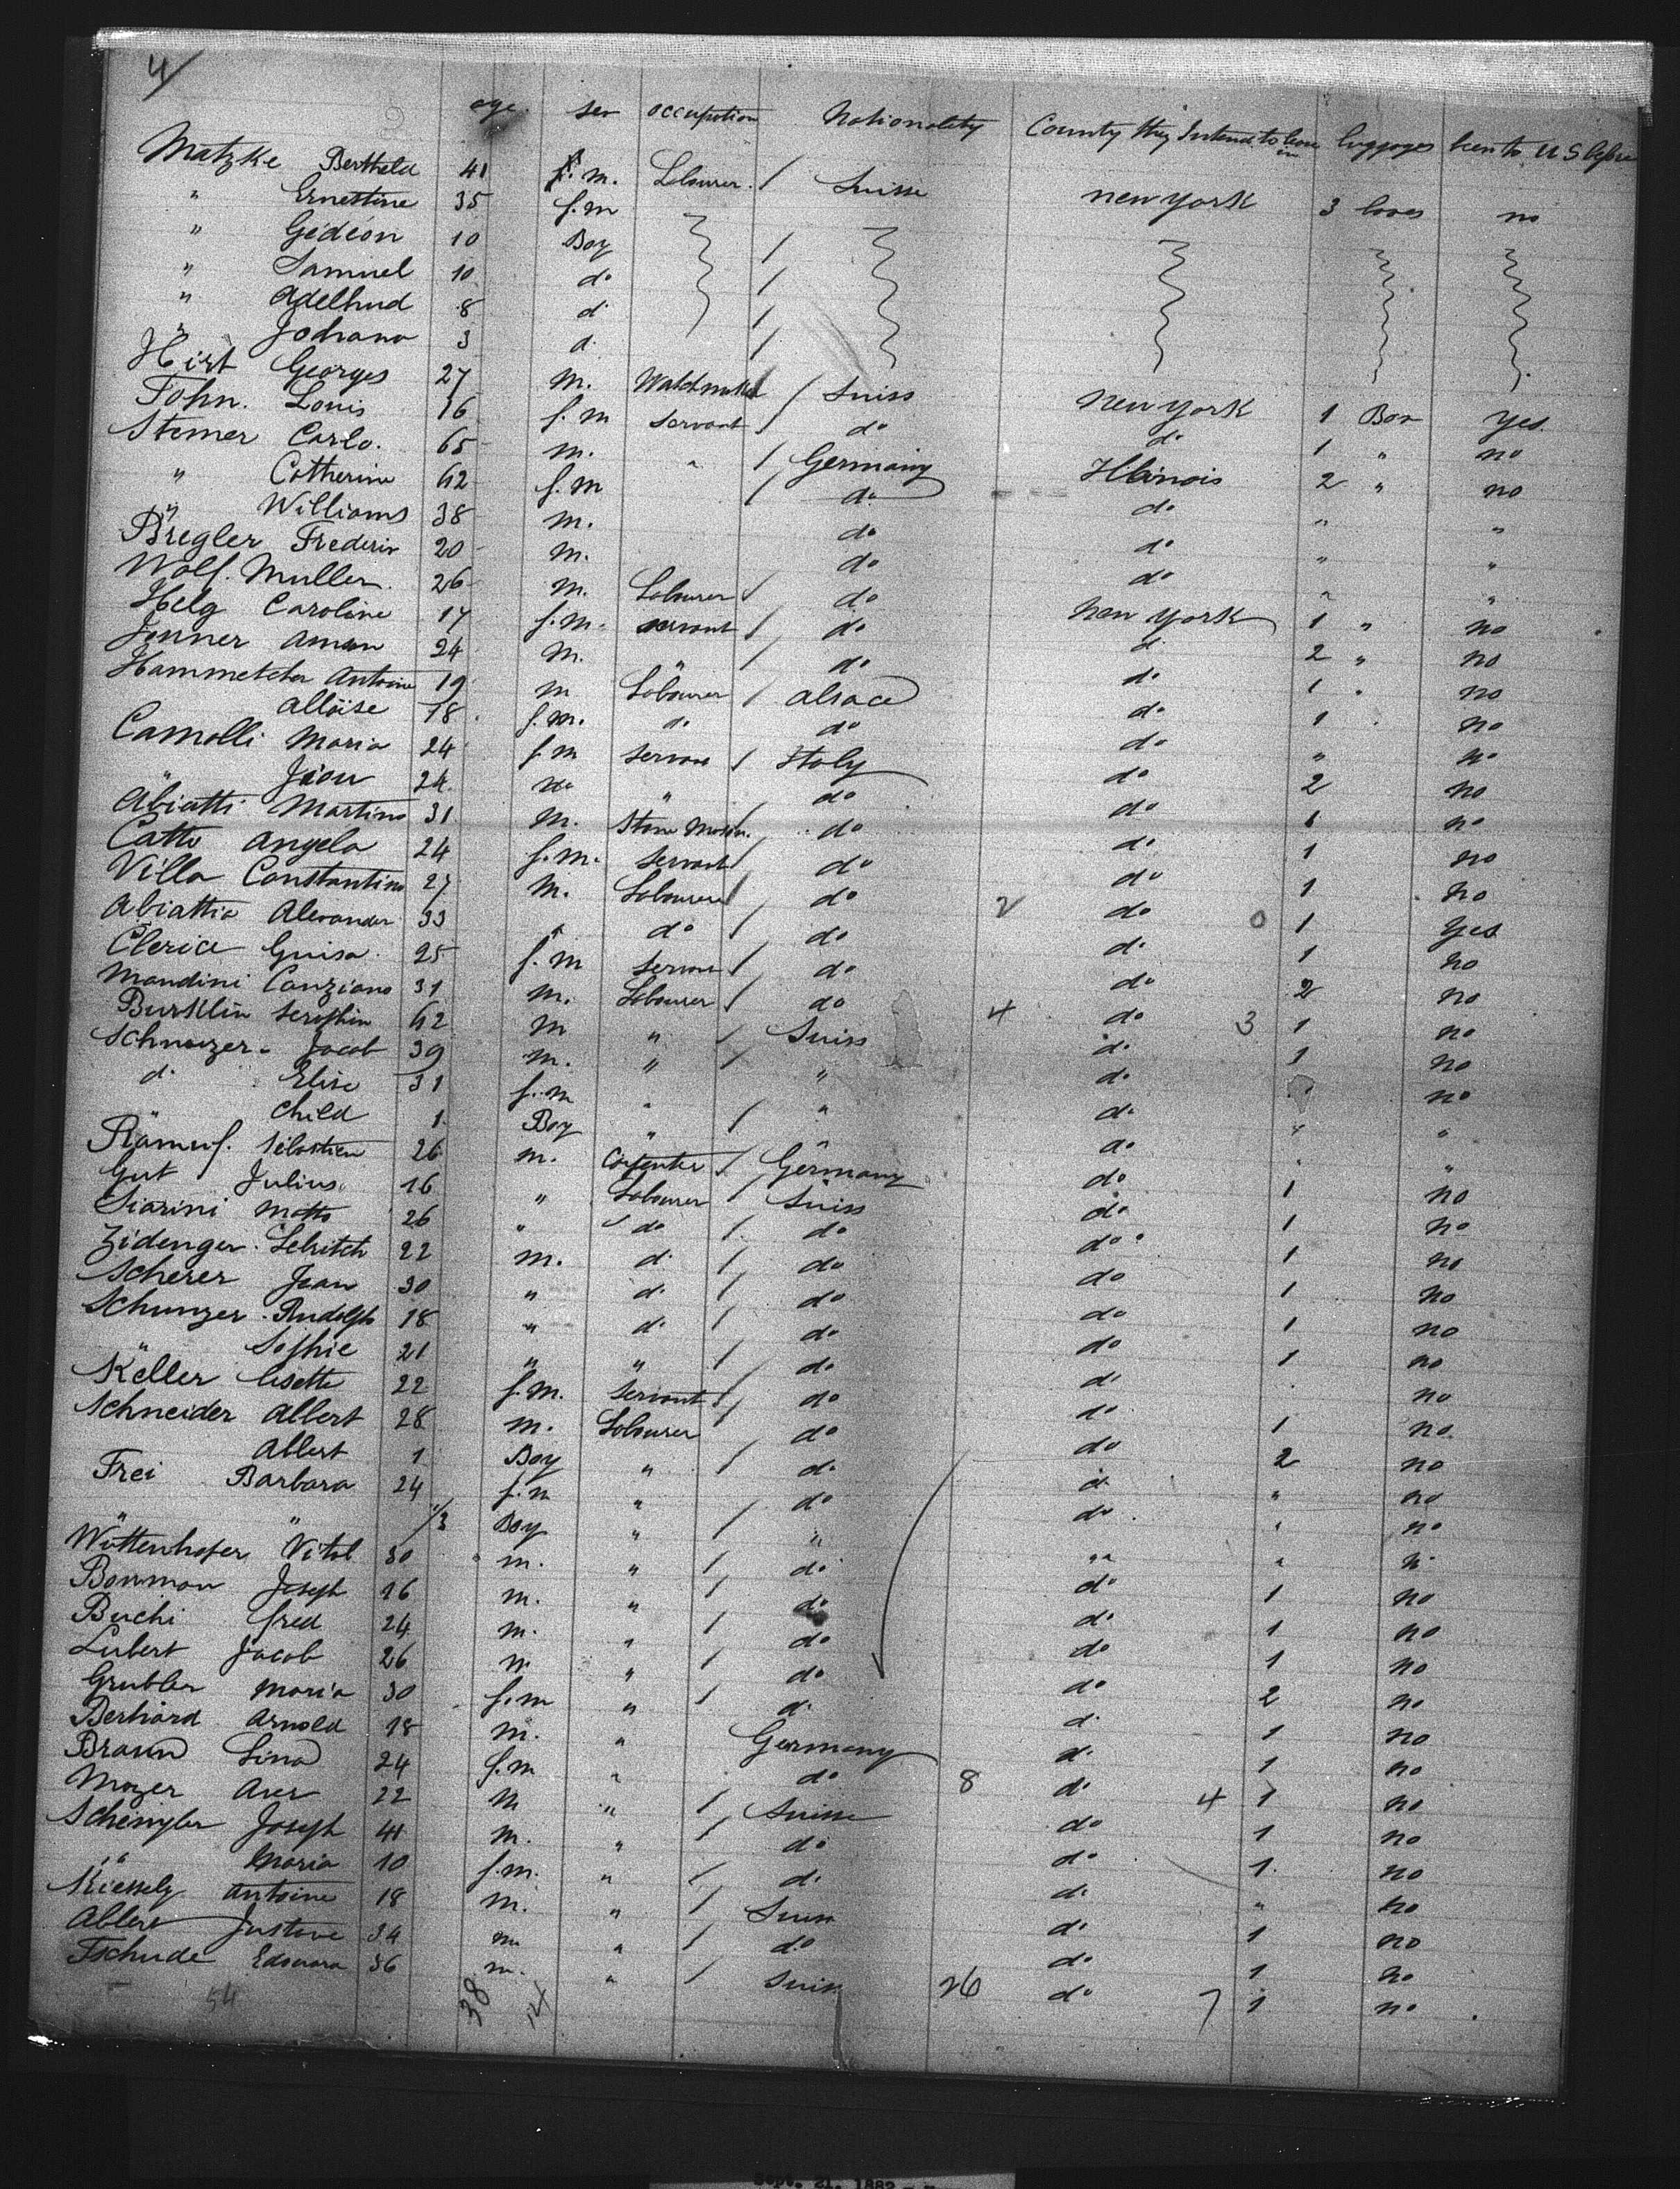 4
age. sex occupation Nationality County they Intend to leave in luggages been to U S before
Matzke Berthold 41 m. Labourer. / Suisse new york 3 boxes no
" Ernestine 35 f.m
" Gédéon 10 Boy /
" Samuel 10 do /
" Adelhud 8 d. /
" Johana 3 d. /
Hirt Georges 27 m. Watchmaker / Suiss New york 1 Box yes.
Tohn. Louis 16 f.m servant / do do 1 " no
Stemer Carlo. 65 m. " / Germany Illinois 2 " no
" Catherine 62 f.m / do do " "
" Williams 38 m. do do " "
Bregler Frederix 20 m. do do " "
Wolf. Muller. 26 m. Labourer / do New york 1 " no
Helg Caroline 17 f.m. servant / do d. 2 " no
Jenner Aman 24 m. " / do d. 1 " no
Hammetcher Antoine 19 m Labourer / Alsace do 1 . no
Alloise 18 f.m. do do do " no
Camolli Maria 24 f.m Servant / Italy do 2 no
" Jean 24 m. " do do 1 no
Abiatti Martino 31 m. Stone Mason / do d. 1 no
Catto Angela 24 f.m. Servant / do do 1 no
Villa Constantino 27 m. Labourer / do 2 do 0 1 Yes
Abiattia Alexander 33 " do / do d. 1 no
Clerice Guisa 25 f.m Servant / do do 2 no
Mandini Canziano 31 m. Labourer / do 4 do 3 1 no
Burklin Seraphin 62 m " / Suiss d. 1 no
Schnuzer. Jacob 39 m. " / " do no
d. Elise 31 f.m " " do " "
" Child 1 Boy " / " do " "
Ramuf. Sebastien 26 m. Carpenter / Germany do 1 no
Gut Julius 16 " Labourer / Suiss do 1 no
Siarini Matto 26 " do / do do 1 no
Zidenger. 22 m. d. / do do 1 no
Scherer Jean 30 " d. / do do 1 no
Schunzer. Rudolph 18 " d. / do do 1 no
" Sophie 21 " " / do d. no
Keller Lisette 22 f.m. Servant / do do 1 no
Schneider Albert 28 m. Labourer / do do 2 no
Albert 1 Boy " / d. d. " no
Frei Barbara 24 f.m " / do do " no
" " 1/3 Boy " / " " " n.
Wottenhofer Vital 30 m. " / do do 1 no
Bonmon Joseph 16 m. " / do d. 1 no
Buchi fred 24 m. " / do do 1 no
Lubert Jacob 26 m " / do do 2 no
Grubler Maria 30 f.m " / d. d. 1 no
Berhard Arnold 18 m. " Germany d. 1 no
Braun Lina 24 f.m " do 8 do 4 1 no
Mozer 22 m " / Suisse do 1 no
Schengler Joseph 41 m. " / do do 1 no
" Maria 10 f.m. " / d. d. " no
Kiessely Antoine 18 m. " / Suiss d. 1 no
Albert Justave 34 m " / do do 1 no
Tschude Edouard 36 m. " / Suiss 26 do 7 1 no
54 38 14
Sept. 21, 1882